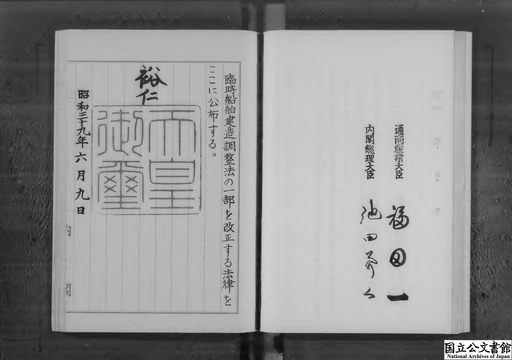 臨時船舶建造調整法の一部を改正する法律を
ここに公布する。
裕仁
天皇
御璽
昭和三十九年六月九日
内閣
通商産業大臣
福田一
内閣総理大臣
池田勇人
国立公文書館
National Archives of Japan